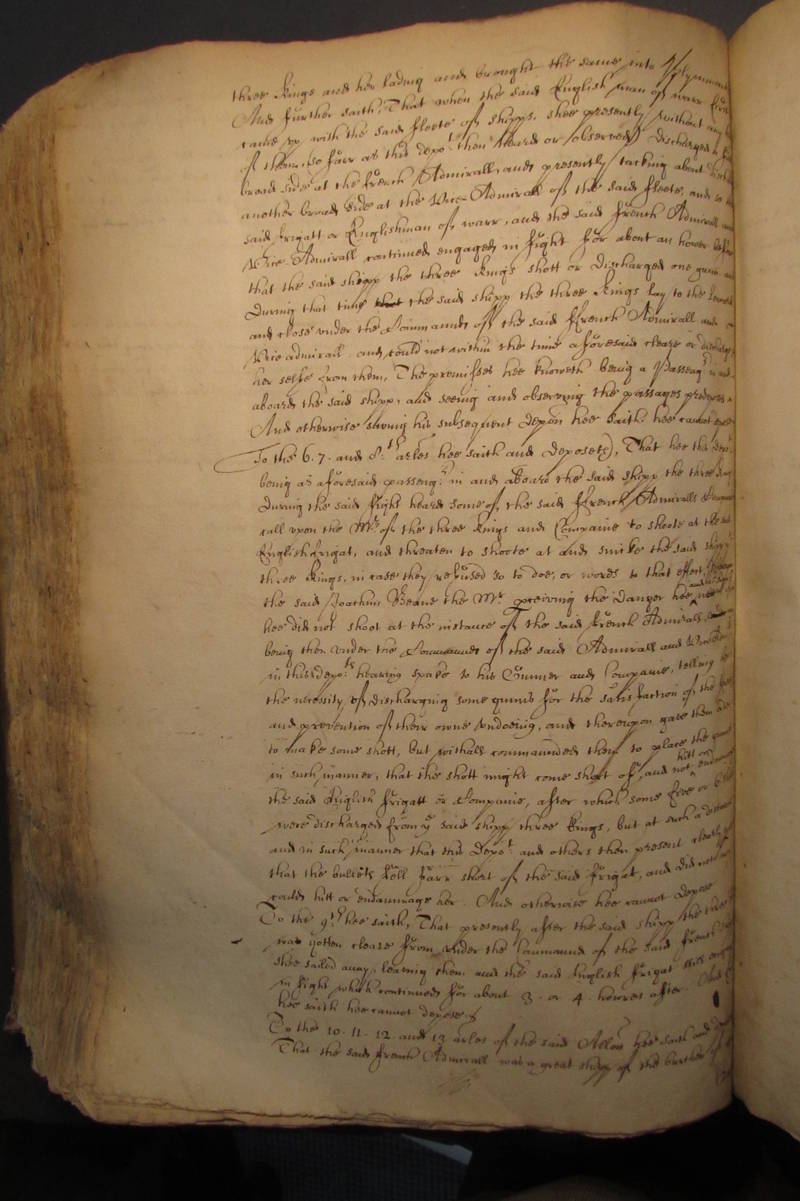 three Kings and her ladinge and brought the same into Plymmouth
And further saith, That when the said English man of warr first
came up with the said fleete of shipps, shee presently without any
of them, so farr as this depo:t then heard or observed discharged a
broad side at the french Admirall, and presently tacking about
another broad side at the Vice Admirall of the said fleete, and
said frigatt or Englishman of warr, and the said french Admirall and
Vice Admirall continued engaged in fight for about an hower before
that the said shipp the three Kings shott or discharged one gunn and
During that time the said shipp the three Kings lay to the
and close under the Commaund of the said ffrench Admirall and
Vice admirall and could not within the time aforesaid cleare or
her selfe from them, The premisses hee knoweth being a Passeng:r in and
aboard the said shipp, and seeing and observing the passages
And otherwise saving his subsequent depon hee saith hee cannot
To the 6. 7. and 8.th arles hee saith and deposeth, That hee this depo:t
being as aforesaid passeng:r in and aboard the said shipp the three Kings
During the said fight heard some of the said ffrench Admiralls
call upon the M:r of the three Kings and Companie to shoote at the said
English frigat, and threaten to shoote at and sinke the said shipp
three Kings, in case they refused so to doe, or words to that effect,
the said Joachim Beane the M:r perceiving the danger hee
hee did not shoot at the instance of the said french Admirall
being then under the Commaund of the said Admirall and Vice
in this depo:ts hearing spake to his Gunner and Companie, telling
the necessity of discharging some gunns for the satisfaction of the
and prevention of their owne undoeing, and thereupon gave them
to make some shott, but withall commaunded them to place the
in such manner, that the shott might come short of, and not hitt or
the said English frigatt or Companie, after which some five or
were discharged from y:e said shipp three Kings, but at such a distance
and in such manner that this Depo:t and others then present
that the bullets fell farr short of the said frigat, and did not
could hitt or endammage her. And otherwise hee cannot depose
To the 9:th hee saith, That presently after the said shipp the three
was gotten cleare from under the Commaund of the said french
shee sailed away, leaving them and the said English frigat still
in fight which continued for about 3. or 4. howres after.
hee saith hee cannot depose.
To the 10. 11. 12. and 13 arles of the said Allon hee saith and
That the said french Admirall was a great shipp of the burthen of